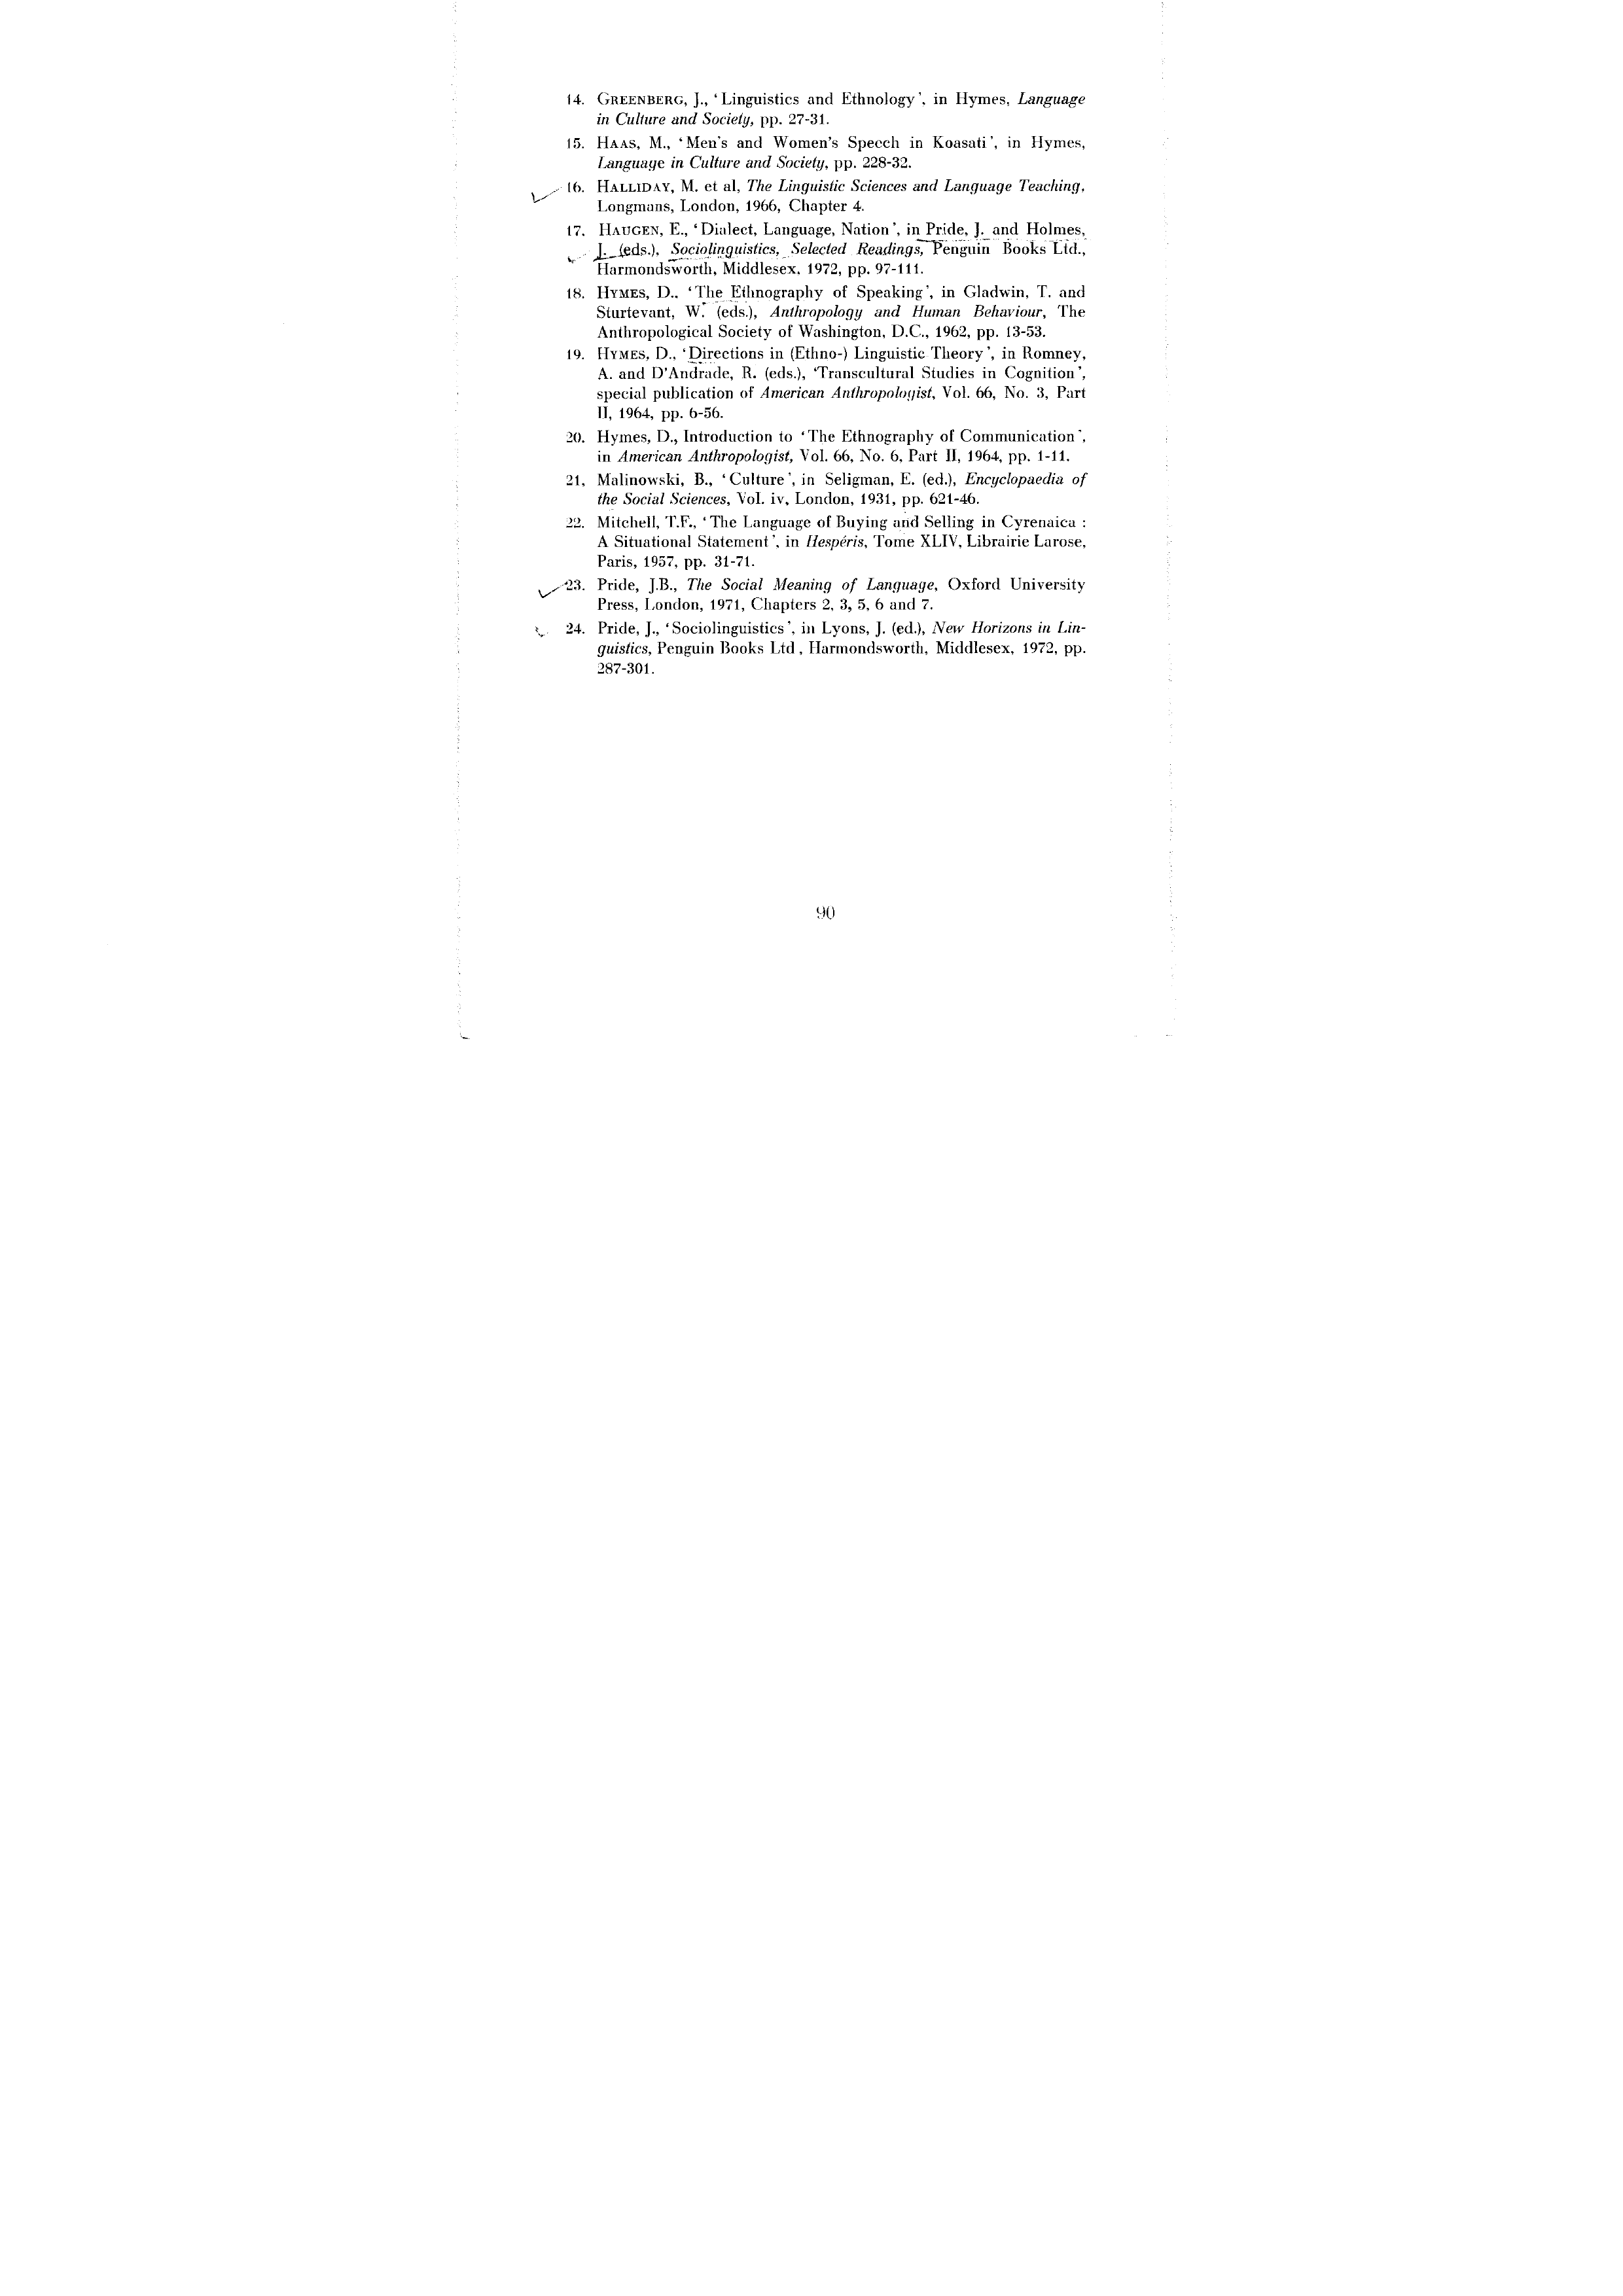 14. GREENBERG, J., ‘Linguistics and Ethnology’, in Hymes, Language
in Culture and Society, pp. 27-31.
15. HAAS, M., ‘Men's and Women's Speech in Koasati’, in Hymes,
Language in Culture and Society, pp. 228-32.
16. HALLIDAY, M. et al, The Linguistic Sciences and Language Teaching,
Longmans, London, 1966, Chapter 4.
17. HAUGEN, E., ‘Dialect, Language, Nation’, in Pride, J. and Holmes,
J. (eds.), Sociolinguistics, Selected Readings, Penguin Books Ltd.,
Harmondsworth, Middlesex, 1972, pp. 97-111.
18. HYMES, D., ‘The Ethnography of Speaking’, in Gladwin, T. and
Sturtevant, W. (eds.), Anthropology and Human Behaviour, The
Anthropological Society of Washington, D.C., 1962, pp. 13-53.
19. HYMES, D., ‘Directions in (Ethno-) Linguistic Theory’, in Romney,
A. and D'Andrade, R. (eds.), ‘Transcultural Studies in Cognition’,
special publication of American Anthropologist, Vol. 66, No. 3, Part
II, 1964, pp. 6-56.
20. Hymes, D., Introduction to ‘The Ethnography of Communication’,
in American Anthropologist, Vol. 66, No. 6, Part II, 1964, pp. 1-11.
21. Malinowski, B., ‘Culture’, in Seligman, E. (ed.), Encyclopaedia of
the Social Sciences, Vol. iv, London, 1931, pp. 621-46.
22. Mitchell, T.F., ‘The Language of Buying and Selling in Cyrenaica :
A Situational Statement’, in Hespéris, Tome XLIV, Librairie Larose,
Paris, 1957, pp. 31-71.
23. Pride, J.B., The Social Meaning of Language, Oxford University
Press, London, 1971, Chapters 2, 3, 5, 6 and 7.
24. Pride, J., ‘Sociolinguistics’, in Lyons, J. (ed.), New Horizons in Lin-
guistics, Penguin Books Ltd, Harmondsworth, Middlesex, 1972, pp.
287-301.
90